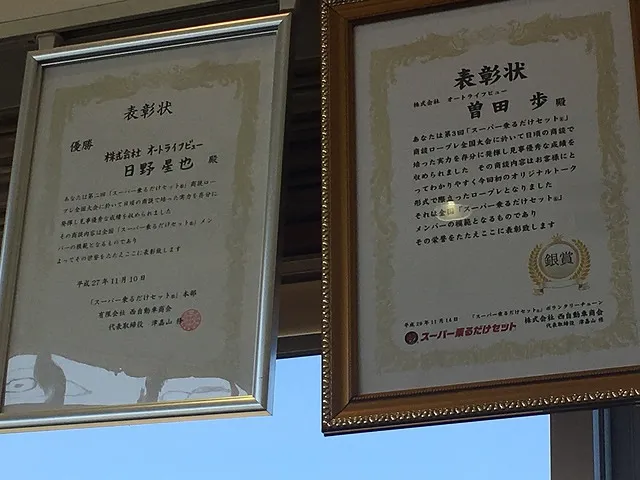 表彰状
優勝
株式会社 オートライフビュー
日野 星也 殿
あなたは第二回「スーパー乗るだけセット®」商談ロー
プレ全国大会に於いて日頃の商談で培った実力を存分に
発揮し見事優秀な成績を収められました
その商談内容は全国「スーパー乗るだけセット®」メン
バーの模範となるものであり
よってその栄誉をたたえここに表彰致します
平成27年11月10日
「スーパー乗るだけセット®」本部
有限会社 西自動車商会
代表取締役 津畠山 修
表彰状
株式会社 オートライフビュー
曽田 歩 殿
あなたは第3回「スーパー乗るだけセット®」
商談ロープレ全国大会に於いて日頃の商談で
培った実力を存分に発揮し見事優秀な成績を
収められました その商談内容はお客様にと
ってわかりやすく今回初のオリジナルトーク
形式で際立ったロープレとなりました
それは全国「スーパー乗るだけセット®」
メンバーの模範となるものであり
その栄誉をたたえここに表彰致します
銀賞
平成28年11月16日
「スーパー乗るだけセット®」ボランタリーチェーン
スーパー乗るだけセット
株式会社 西自動車商会
代表取締役